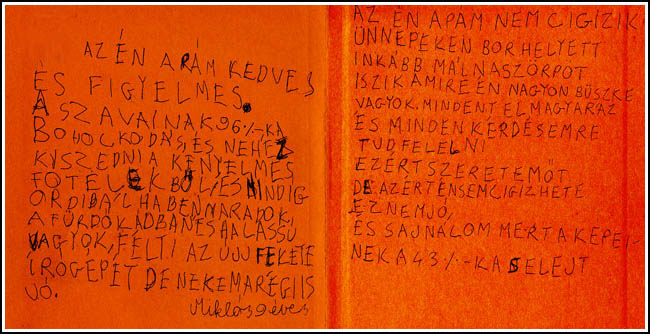 AZ ÉN APÁM KEDVES
ÉS FIGYELMES.
A SZAVAINAK 96%-KA
BOHÓCKODÁS, ÉS NEHÉZ
KISZEDNI A KÉNYELMES
FOTELEKBŐL, ÉS MINDIG
ORDIBÁL HA BENMARADOK,
A FÜRDŐKÁDBAN ÉS HA LASSÚ
VAGYOK, FÉLTI AZ ÚJJ FEKETE
ÍRÓGÉPÉT DE NEKEM A RÉGI IS
JÓ.
Miklós 9 éves
AZ ÉN APÁM NEM CIGIZIK
ÜNNEPEKEN BOR HELYETT
INKÁBB MÁLNASZÖRPÖT
ISZIK AMIRE ÉN NAGYON BÜSZKE
VAGYOK. MINDENT ELMAGYARÁZ
ÉS MINDEN KÉRDÉSEMRE
TUD FELELNI
EZÉRT SZERETEM ŐT
DE AZÉRT ÉN SEM CIGIZHETÉ
EZ NEM JÓ,
ÉS SAJNÁLOM MERT A KÉPEI-
NEK A 43%-KA SELEJT